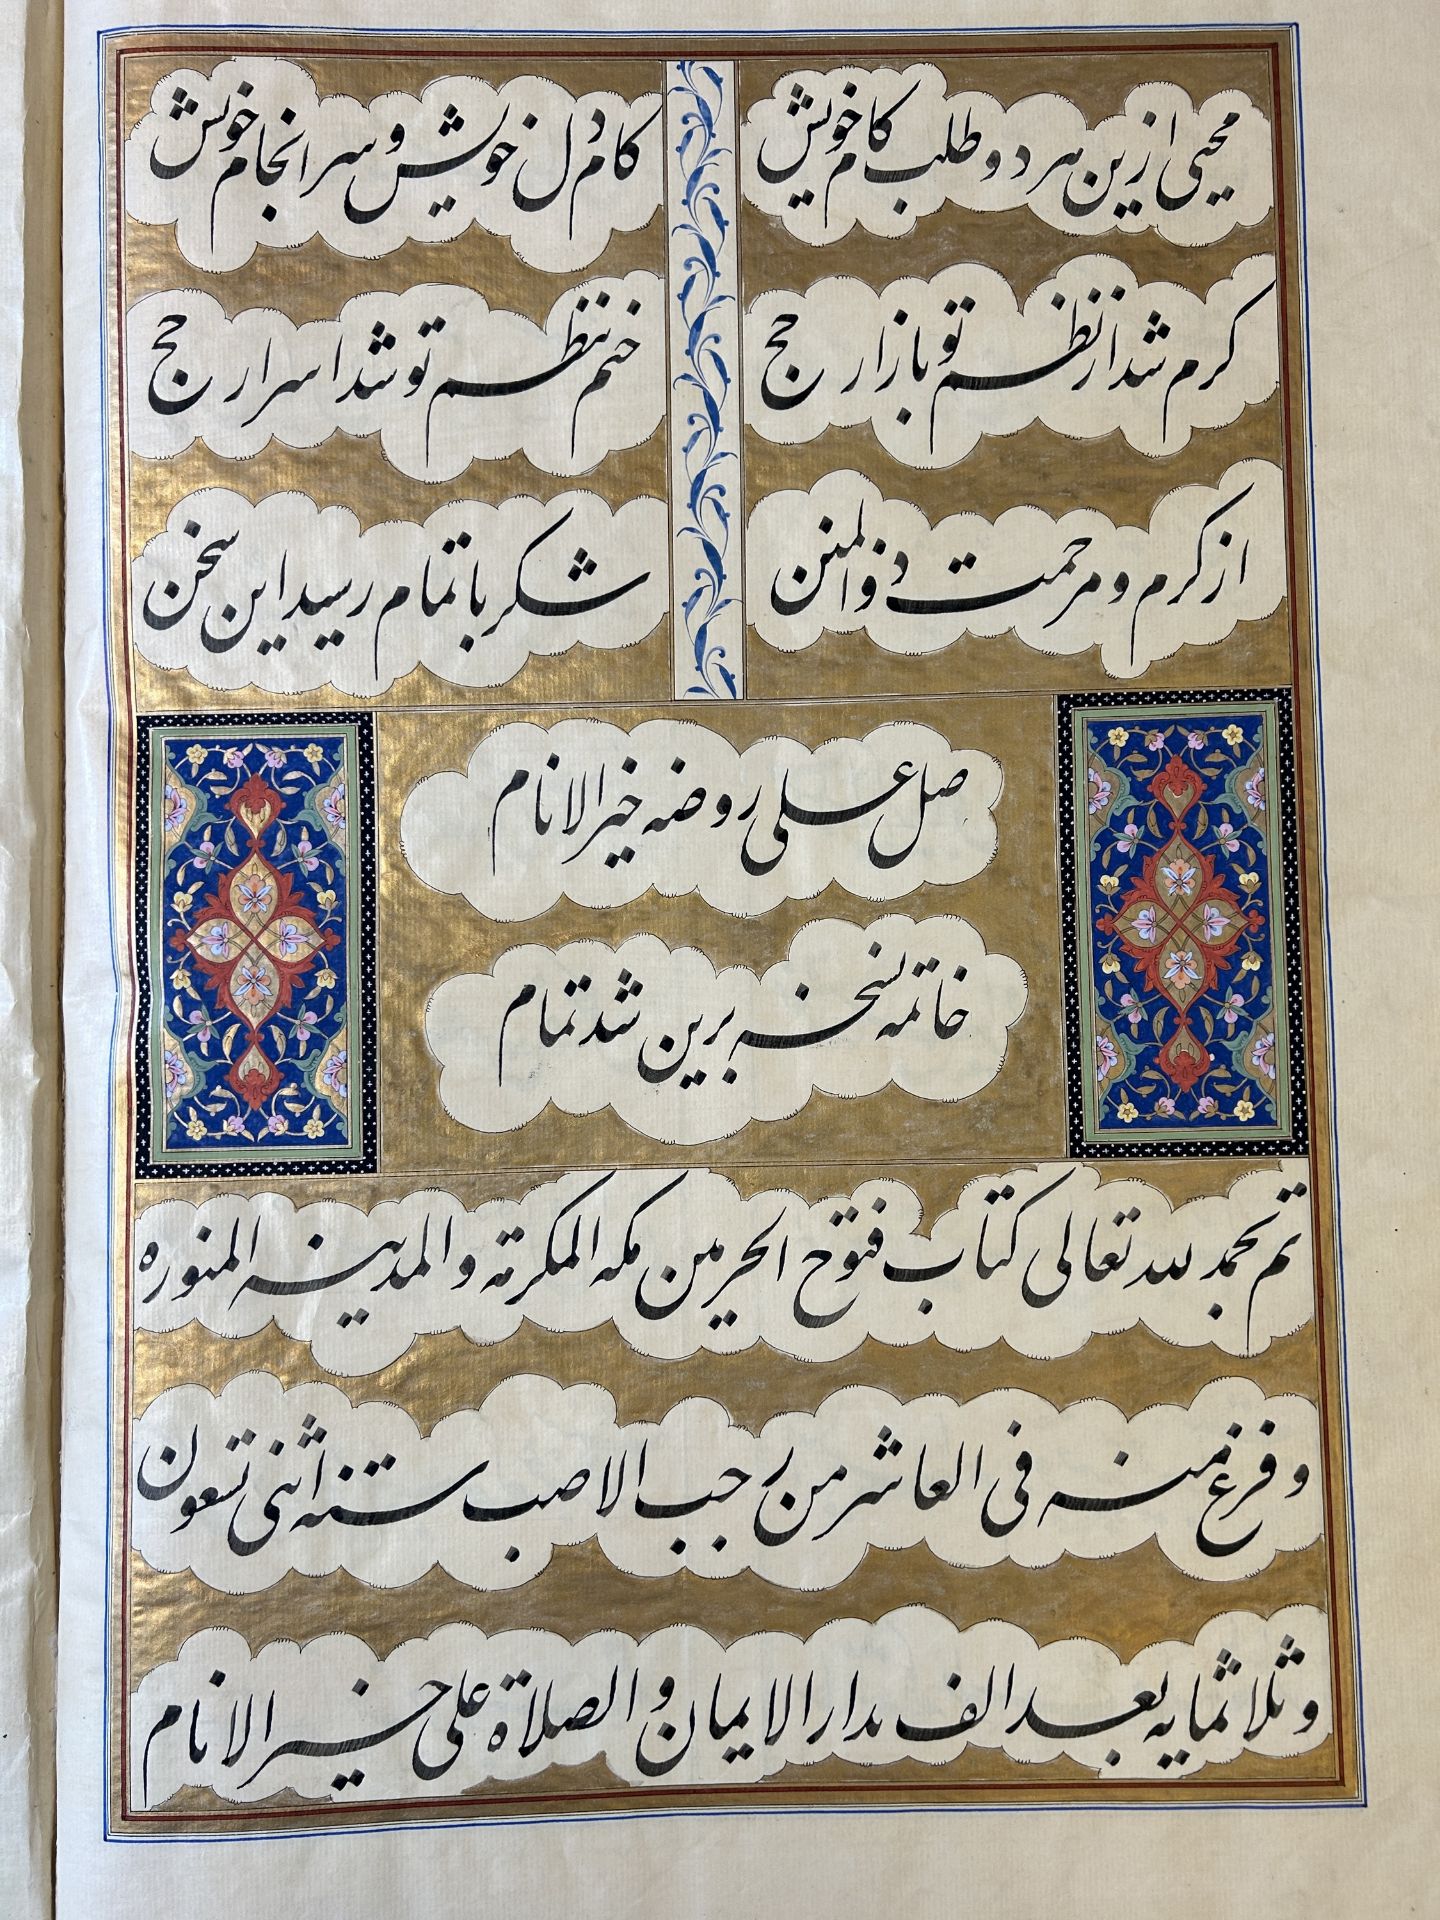 محیی ازین هر دو طلب کام خویش
کام دل خویش و سرانجام خویش
کرم شد از نظم تو بازار حج
ختم بنظم تو شد اسرار حج
از کرم و مرحمت ذوالمنن
شکر باتمام رسید این سخن
صل علی روضه خیر الانام
خاتمه نسخه برین شد تمام
تم بحمد لله تعالی کتاب فتوح الحرمین مکه المکرمة والمدینه المنوره
و فرغ منه فی العاشر من رجب الاصب سنته اثنی تسعون
و ثلاثمایه بعد الف بدار الایمان والصلاة علی خیر الانام